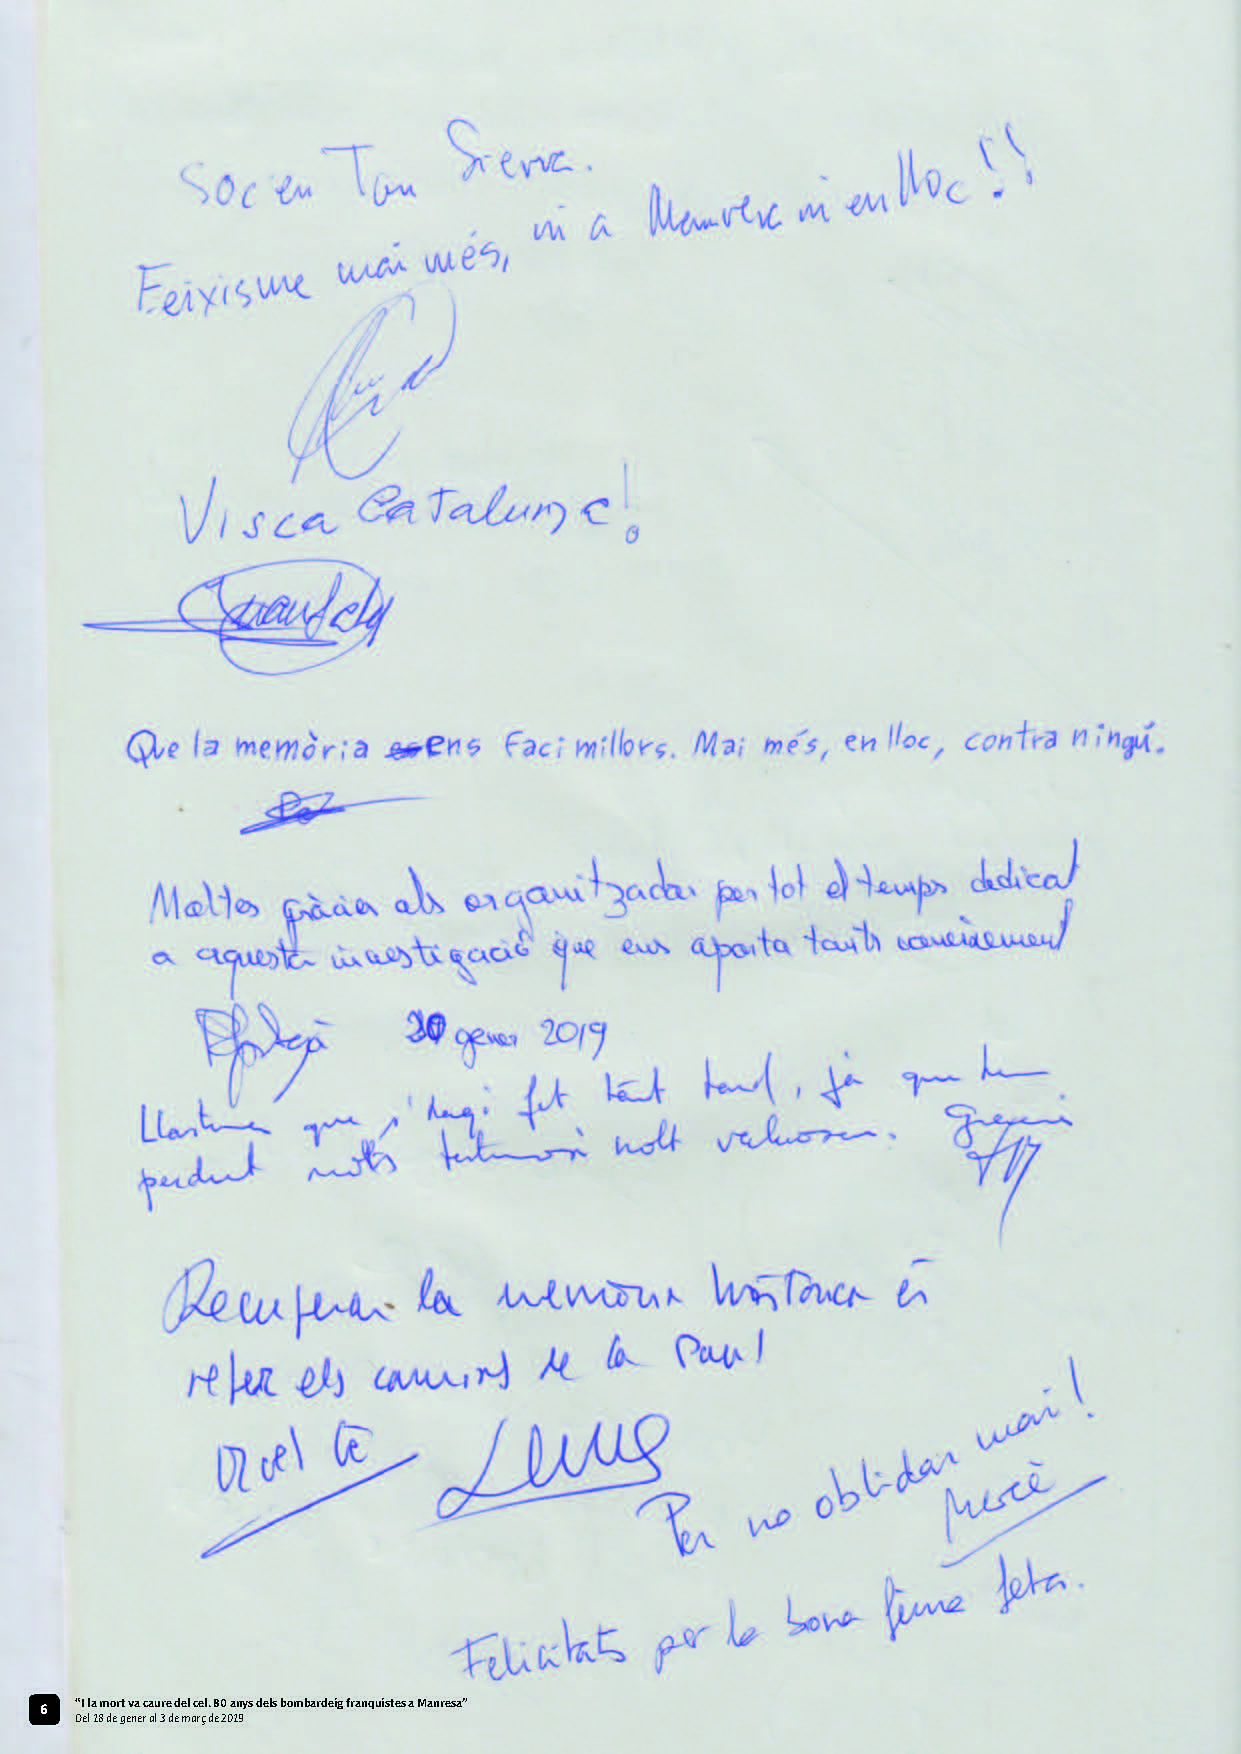 Soc en Ton Sierra.
Feixisme mai més, ni a Manresa ni en lloc!!
Visca Catalunya!
Que la memòria ens faci millors. Mai més, en lloc, contra ningú.
Moltes gràcies als organitzadors per tot el temps dedicat
a aquesta investigació que ens aporta tants coneixement
20 gener 2019
Llastima que s'hagi fet tant tard, ja que hem
perdut molts testimonis molt valuosos. Gràcies
Recuperar la memòria històrica és
refer els camins de la Pau!
Per no oblidar mai!
Mercè
Felicitats per la bona feina feta.
6
"I la mort va caure del cel. 80 anys dels bombardeig franquistes a Manresa"
Del 18 de gener al 3 de març de 2019